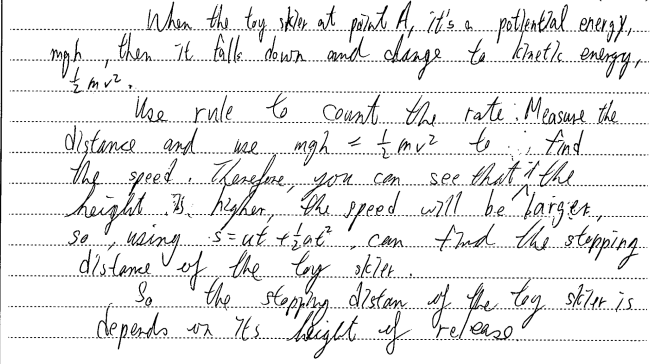 When the toy skier at point A, it's a potiential energy,
mgh, then it falls down and change to kinetic energy,
½mv².
Use rule to count the rate. Measure the
distance and use mgh = ½mv² to find
the speed. Therefore, you can see that if the
height is higher, the speed will be larger,
so, using s=ut+½at², can find the stopping
distance of the toy skier.
So the stopping distan of the toy skier is
depends on its height of release.